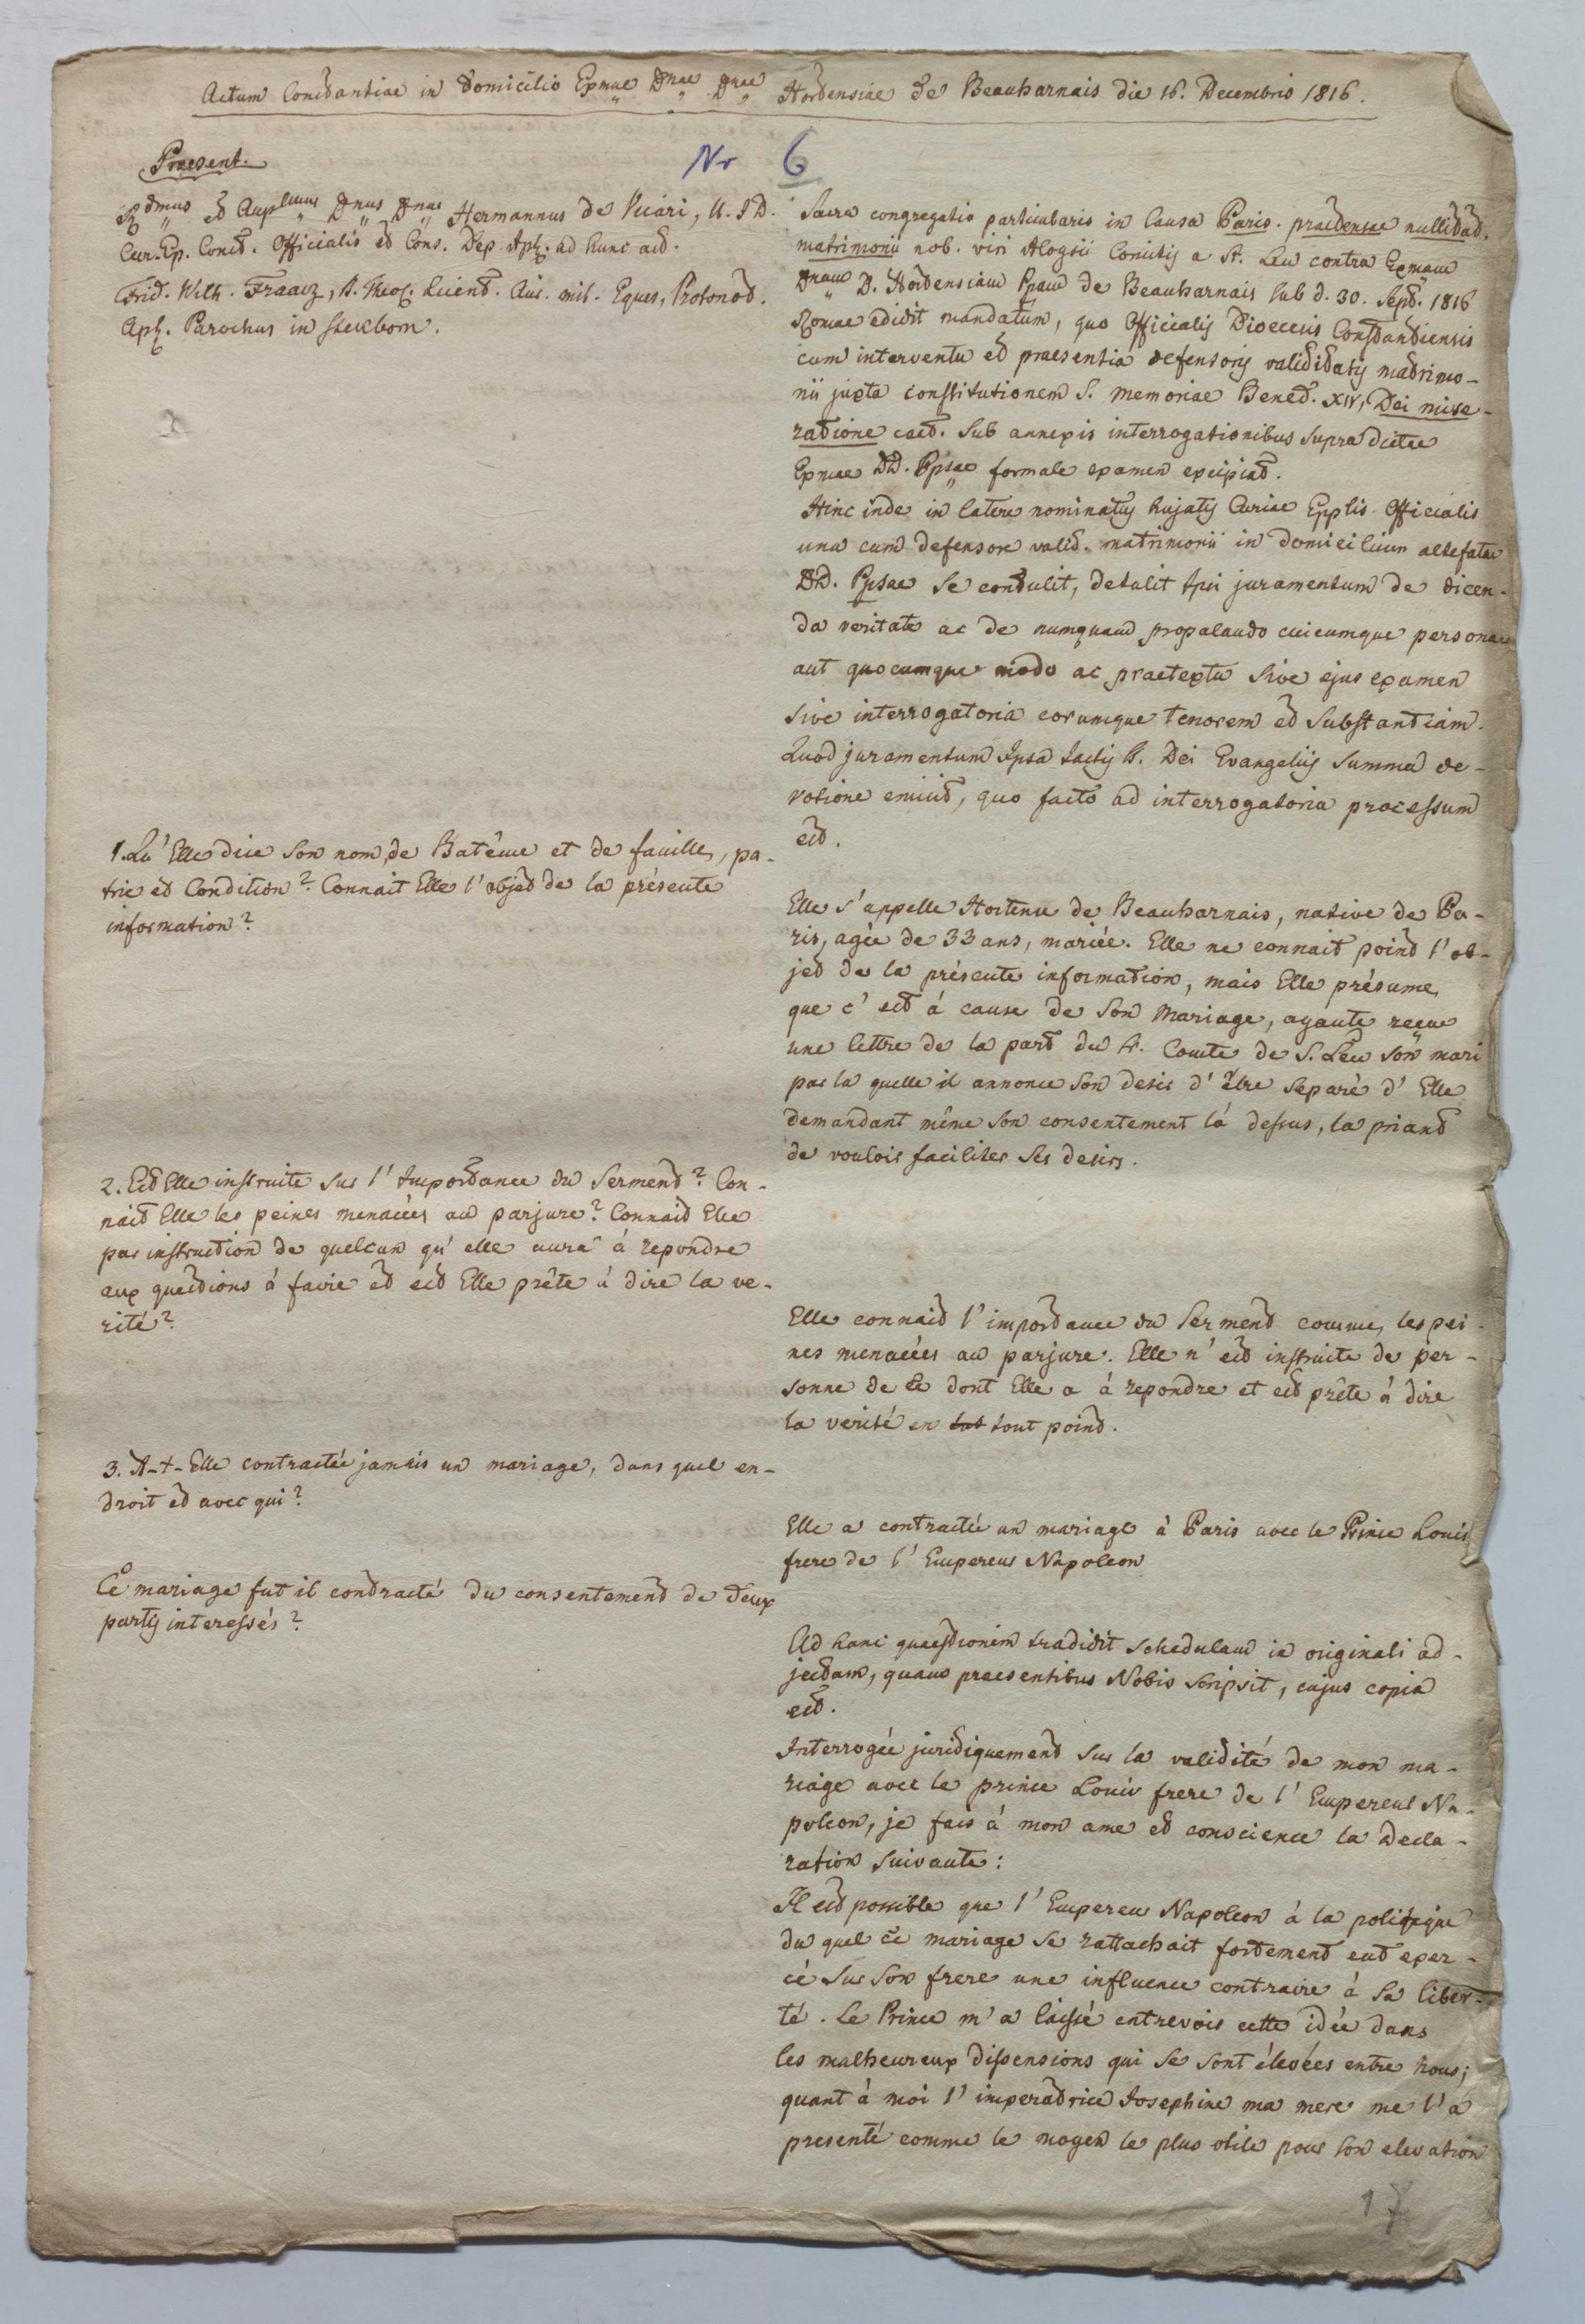 Actum Constantiae in Domicilio Exmae Dnae Dnae Hortensiae de Beauharnais die 16. Decembris 1816.
Nr 6
Praesent.
Rdmus et Amplimus Dnus Dnus Hermannus de Vicari, U. J. D.
Cur. Ep. Const. Officialis et Cons. Dep. Ap. ad hunc act.
Frid. Wilh. , S. Theol. Licent. Aur. mil. Eques, Protonot.
Ap. Parochus in Steckborn.
Sacra congregatio particularis in Causa Paris. praetensae nullitat.
matrimonii nob. viri Aloysii Comitis a St. Leu contra Exmam
Dnam D. Hortensiam Ppam de Beauharnais sub d. 30. Sept. 1816
Romae edidit mandatum, quo Officialis Dioecesis Constantiensis
cum interventu et praesentia defensoris validitatis matrimo-
nii juxta constitutionem S. memoriae Bened. XIV, Dei mise-
ratione caet. sub annexis interrogationibus supra dictae
Exmae DD. Ppsae formale examen excipiat.
Hinc inde in latere nominatus hujatis Curiae Epplis Officialis
una cum defensore valid. matrimonii in domicilium altefatae
DD. Ppsae se contulit, detulit Ipsi juramentum de dicen-
da veritate ac de numquam propalando cuicumque personae
aut quocumque modo ac praetextu sive ejus examen
sive interrogatoria eorumque tenorem et substantiam.
Quod juramentum Ipsa tactis S. Dei Evangeliis summa de-
votione emisit, quo facto ad interrogatoria processum
est.
1. Qu'Elle dise son nom de Batême et de famille, pa-
trie et Condition? Connait Elle l'objet de la présente
information?
Elle s'appelle Hortense de Beauharnais, native de Pa-
ris, agée de 33 ans, mariée. Elle ne connait point l'ob-
jet de la présente information, mais Elle présume,
que c'est á cause de son mariage, ayante reçue
une lettre de la part du Sr. Comte de S. Leu son mari
par la quelle il annonce son desir d'être separé d'Elle
demandant même son consentement lá dessus, la priant
de vouloir faciliter ses desirs.
2. Est Elle instruite sur l'Importance du Serment? Con-
nait Elle les peines menacées au parjure? Connait Elle
par instruction de quelcun qu'elle aura á repondre
aux questions á faire et est Elle prête á dire la ve-
rité?
Elle connait l'importance du Serment comme, les pei-
nes menacées au parjure. Elle n'est instruite de per-
sonne de ce dont Elle a á repondre et est prête á dire
la verité en tout point.
3. A-t-Elle contractée jamais un mariage, dans quel en-
droit et avec qui?
Elle a contractée un mariage á Paris avec le Prince Louis
frere de l'Empereur Napoleon
Ce mariage fut il contracté du consentement de deux
partis interessés?
Ad hanc quaestionem tradidit schedulam in originali ad-
jectam, quam praesentibus Nobis scripsit, cujus copia
est.
Interrogée juridiquement sur la validité de mon ma-
riage avec le prince Louis frere de l'Empereur Na-
poleon, je fais á mon ame et conscience la Decla-
ration suivante:
Il est possible que l'Empereur Napoleon á la politique
du quel ce mariage se rattachait fortement eut exer-
cé sur son frere une influence contraire á sa liber-
té. Le Prince m'a laissé entrevoir cette idée dans
les malheureux dissensions qui se sont élevées entre nous;
quant á moi l'imperatrice Josephine ma mere me l'a
presenté comme le moyen le plus utile pour son elevation
17